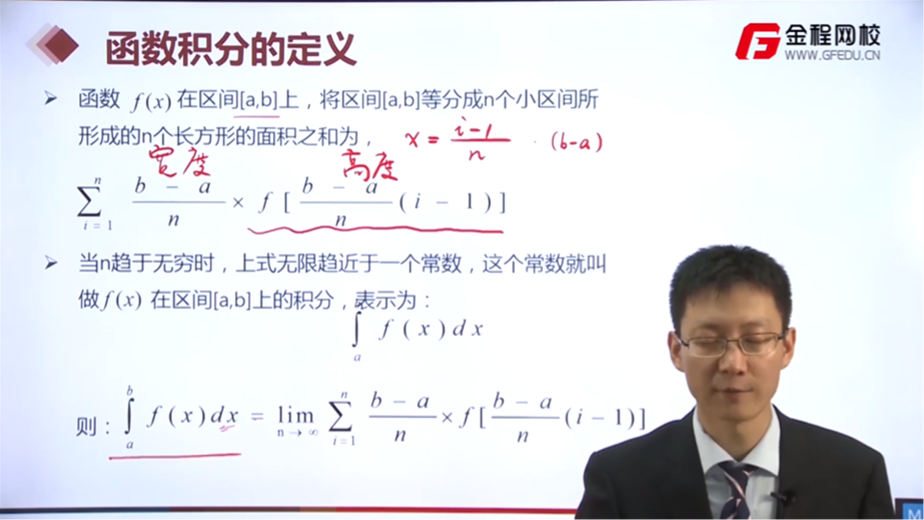 函数积分的定义
金程网校
WWW.GFEDU.CN
函数 f(x) 在区间[a,b]上，将区间[a,b]等分成n个小区间所
形成的n个长方形的面积之和为， x = i-1/n · (b-a)
宽度 高度
∑_{i=1}^{n} b-a/n × f[b-a/n(i-1)]
当n趋于无穷时，上式无限趋近于一个常数，这个常数就叫
做f(x) 在区间[a,b]上的积分，表示为：
∫_a f(x)dx
则：∫_a^b f(x)dx = lim_{n→∞} ∑_{i=1}^{n} b-a/n × f[b-a/n(i-1)]
M